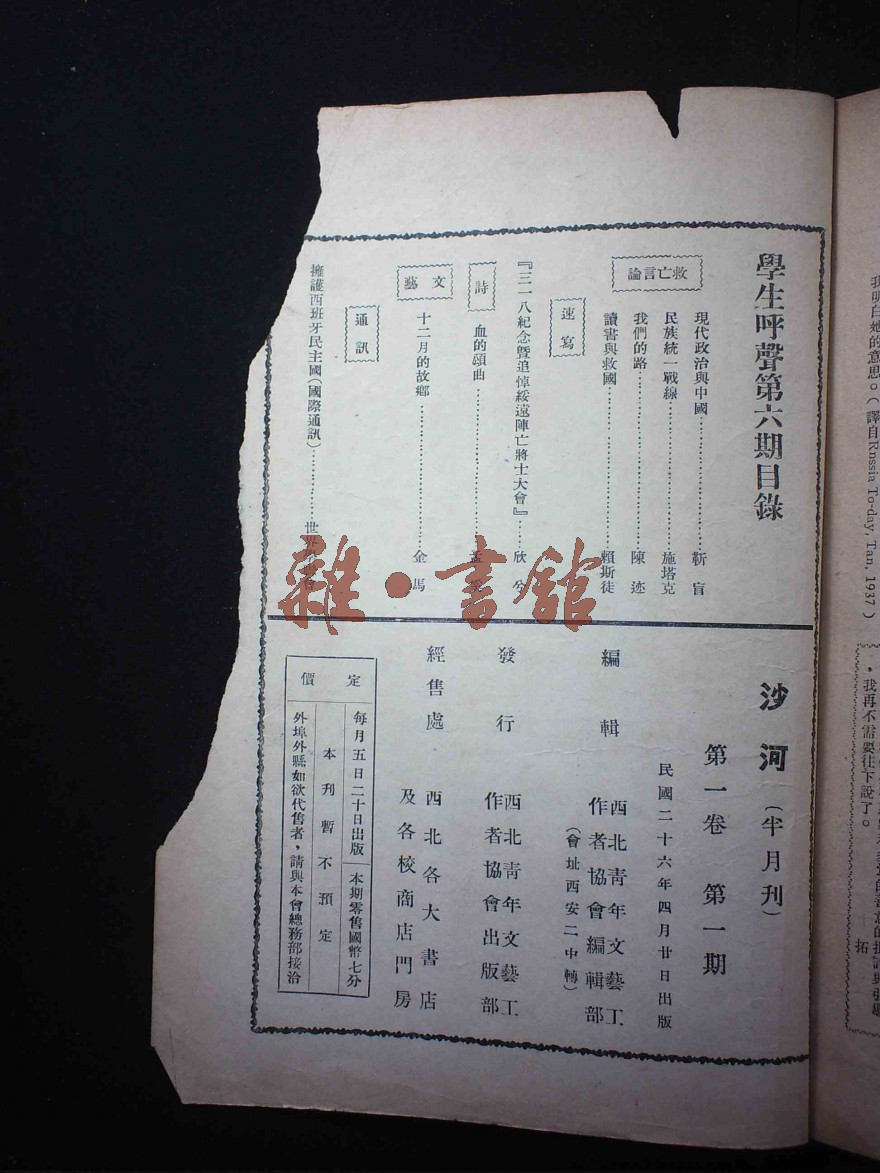 學生呼聲第六期目錄
救亡言論
現代政治與中國……靳盲
民族統一戰線……施塔克
我們的路……陳迹
讀書與救國……賴斯徒
速寫
『三一八紀念暨追悼綏遠陣亡將士大會』……欣兮
詩
血的頌曲……孟
文藝
十二月的故鄉……金馬
通訊
擁護西班牙民主國(國際通訊)……世界
沙河(半月刊)
第一卷 第一期
民國二十六年四月廿日出版
編輯 西北青年文藝工
作者協會編輯部
(會址西安二中轉)
發行 西北青年文藝工
作者協會出版部
經售處 西北各大書店
及各校商店門房
定價
每月五日二十日出版
本期零售國幣七分
本刊暫不預定
外埠外縣如欲代售者,請與本會總務部接洽
我明白她的意思。(譯自Russia To-day, Tan, 1937)
,我再不需要往下說了。
拓
雜·書館